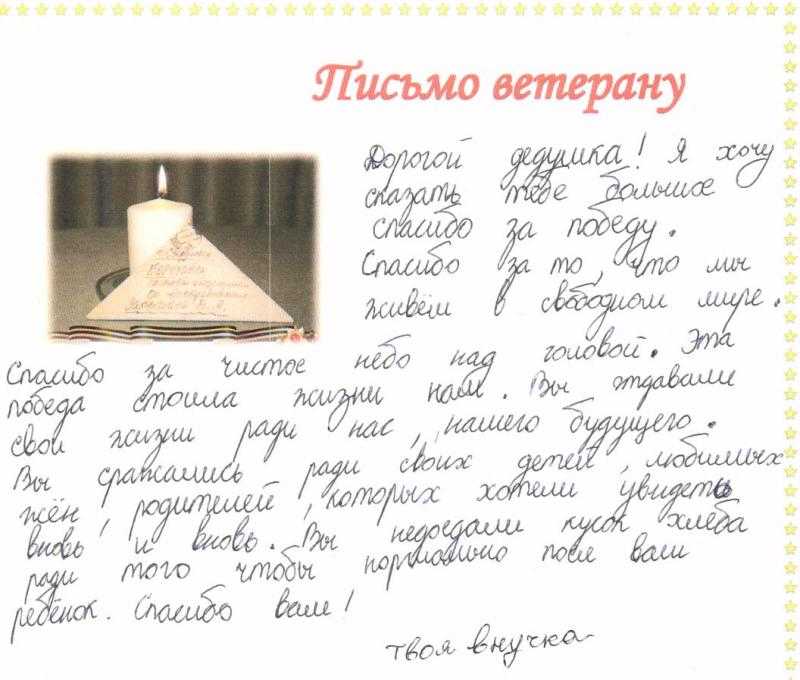 Письмо ветерану
Дорогой дедушка! Я хочу
сказать тебе больших
спасибо за победу.
Спасибо за то, что мы
живём в свободном мире.
Спасибо за чистое небо над головой. Эта
победа стоила жизни нам. Вы отдавали
свои жизни ради нас, нашего будущего.
Вы сражались ради своих детей, любимых
жён, родителей, которых хотели увидеть
вновь и вновь. Вы недоедали кусок хлеба
ради того чтобы нормально поел ваш
ребёнок. Спасибо вам!
твоя внучка